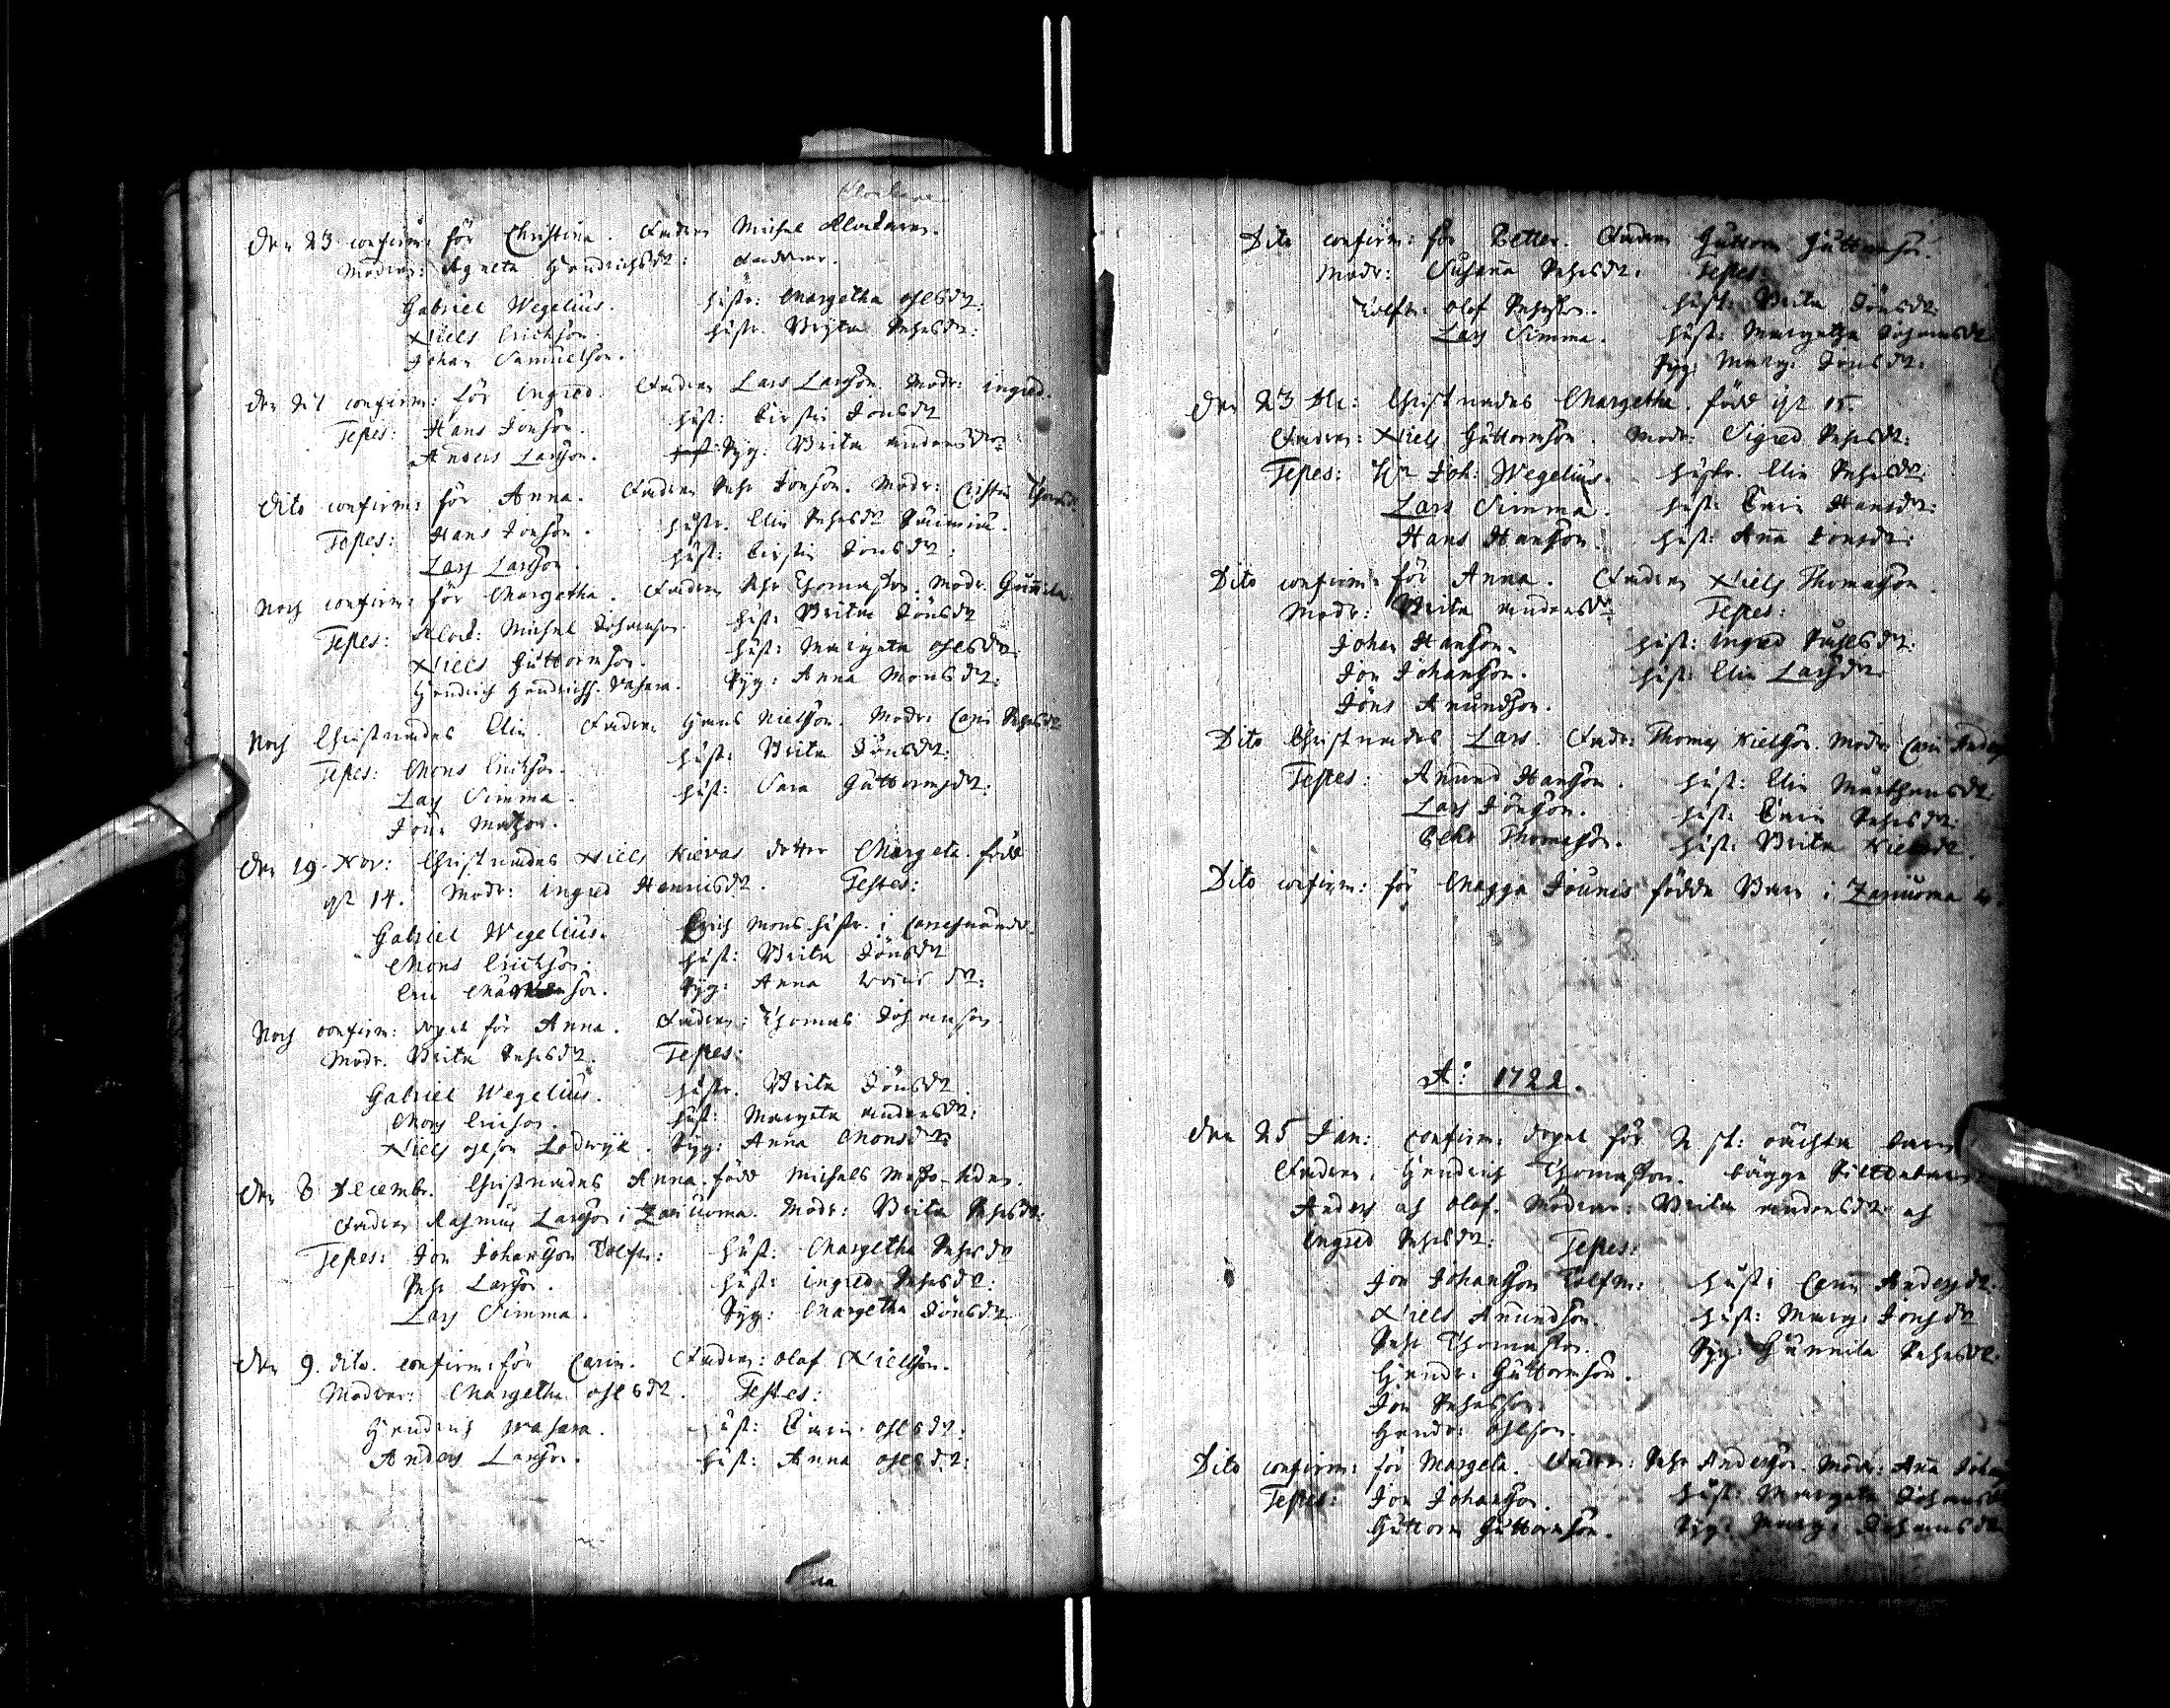 Klockare
Den 23 confirm: för Christina. Fadren Michel Klockaren.
Modren: Agneta Hendrichsdr: Faddrar.
Gabriel Wegelius. hustr: Margetha Ohlsdr:
Niels Erichson. hustr. Brita Pehrsdr:
Johan Samuelson.
Den confirm: för Ingred. Fadren Lars Larson. Modr: ingred.
Testes: Hans Jonson. hust: Kirstin Jonsdr
Anders Larson. Pyg: Brita andersdr:
Dito confirm: för Anna. Fadren Pehr Jonson. Modr: Cirstin
Testes: Hans Jonson. hustr. Elin Pehrsdr
Lars Larson. hust: Kirstin Jonsdr:
Noch confirm: för Margetha. Fadren Pehr Thomasson. Modr. Gunnila
Testes: Klock: Michel Johanson. hust: Brita Jönsdr
Niels Guttormson. hust: Margeta Ohlsdr:
Hendrich Hendrichs. Pyg: Anna Monsdr:
Noch Christnades Elin. Fadren Hans Nielsson. Modr: Carin Pehrsdr
Testes: Mons Erichson. hust: Brita Jönsdr:
Lars Simma. hust: Sara Guttormsdr:
Jon Matson.
Den 19. Nov: Christnades Niels Kieras dotter Margeta. född
yst 14. Modr: ingred Henricsdr. Testes:
Gabriel Wegelius. Erich Mons hustr. i
Mons Erichson. hust: Brita Jönsdr
Eric Pyg: Anna dr:
Noch confirm: dopet för Anna. Fadren: Thomas Johanson.
Modr. Brita Pehrsdr. Testes:
Gabriel Wegelius. hustr. Brita Jönsdr
Mons Ericson. hust: Margeta andersdr:
Niels Olson Lodwyk. Pyg: Anna Monsdr:
Den 8 Decemb. Christnades Anna. född Michels Messo-tiden.
Fadren Rasmus Larson i Modr: Brita Pehrsdr:
Testes: Jon Johanson Tolfm: hust: Margetha Pehrsdr
Pehr Larson. hust: ingred Pehrsdr:
Lars Simma. Pyg: Margetha Jönsdr
Den 9. dito. confirm: för Carin. Fadren: Olof Nielson.
Modren: Margetha Ohlsdr. Testes:
Hendrich Wasara. hust: Carin Ohlsdr:
Anders Larson. hust: Anna Ohlsdr:
Dito confirm: för Petter. Fadren Guttorm Guttormson.
Modr: Susanna Pehrsdr. Testes:
Tolfm: Olof Pehrson. hust: Brita Jönsdr:
Lars Simma. hust: Margetha Johansdr
Pyg: Marg: Jonsdr:
Den 23 dec: Christnades Margetha. född yst 15.
Fadren: Niels Guttormson. Modr: Sigred Pehrsdr:
Testes: Hr Joh: Wegelius. hustr. Elin Pehrsdr
Lars Simma. hust: Carin Hansdr:
Hans Hanson. hust: Anna Jonsdr:
Dito confirm: för Anna. Fadren Niels Thomason.
Modr: Brita andersdr Testes:
Johan Hanson. hust: ingred Pålsdr:
Jon Johanson. hust: Elin Larsdr:
Jöns Anundson.
Dito Christnades Lars. Fadr: Thomas Nielson. Modr: Carin
Testes: Anund Hanson. hust: Elin Mårthensdr
Lars Jönson. hust: Carin Pehrsdr:
Pehr Thomason. hust: Brita Nielsdr.
Dito confirm: för Magga Jounis födda Barn i
Ao: 1722.
Den 25 Jan: confirm: dopet för 2 st: oächta barn
Fadren, Hendrich Thomasson. bägge
Anders och Olof. Modrar: Brita andersdr och
Ingred Pehrsdr: Testes:
Jon Johanson Tolfm: hust: Carin Andersdr:
Niels Anundson. hust: Marg: Jonsdr
Pehr Thomasson. Pyg: Gunnila Pehrsdr:
Hendr: Guttormson.
Jon Pehrsson.
Hendr: Ohlson.
Dito confirm: för Margeta. Fadren: Pehr Anderson. Modr: Anna
Testes: Jon Johanson. hust: Margeta Johansdr
Guttorm Guttormson. Pyg: Marg: Johansdr